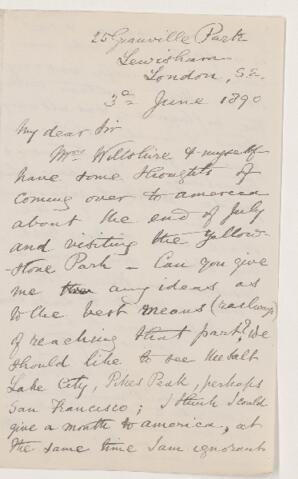 25 Granville Park
Lewisham
London, S.E.
3d June 1890
My dear Sir
Mrs Wiltshire & myself
have some thoughts of
coming over to america
about the end of July
and visiting the Yellow-
-stone Park – Can you give
me any ideas as
to the best means (railways)
of reaching that part? We
should like to see the Salt
Lake City, Pikes Peak, perhaps
San Francisco; I think I could
give a month to america, at
the same time I am ignorant